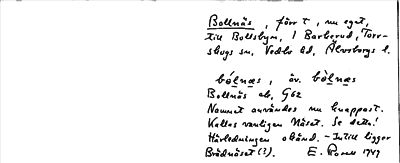 Bollnäs, förr t, nu eget,
till Bollsbyn, i Bäckerud, Torr-
skogs sn, Vedbo hd, Älvsborgs l.
bòlnæs, äv. bòlnæs
Bollnäs ab, G62
Namnet användes nu knappast.
Kallas vanligen Näset. Se detta!
Härledningen okänd. – Intill ligger
Brednäset (?). E. 1947